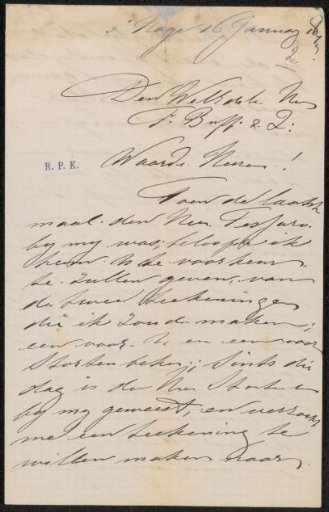 's Hage 16 January
2.
Den Weledele Heer
F. Buffa & Z:
R. P. K.
Waarde Heeren!
Toen de laatste
maal den Heer Tessaro
by my was, beloofde ik
hem U de voorkeur
te zullen geven, van
de twee teekeningen
die ik zoude maken,
een voor U en een voor
; sints die
dag is de Heer
by my geweest, en verzocht
me een teekening te
willen maken naar